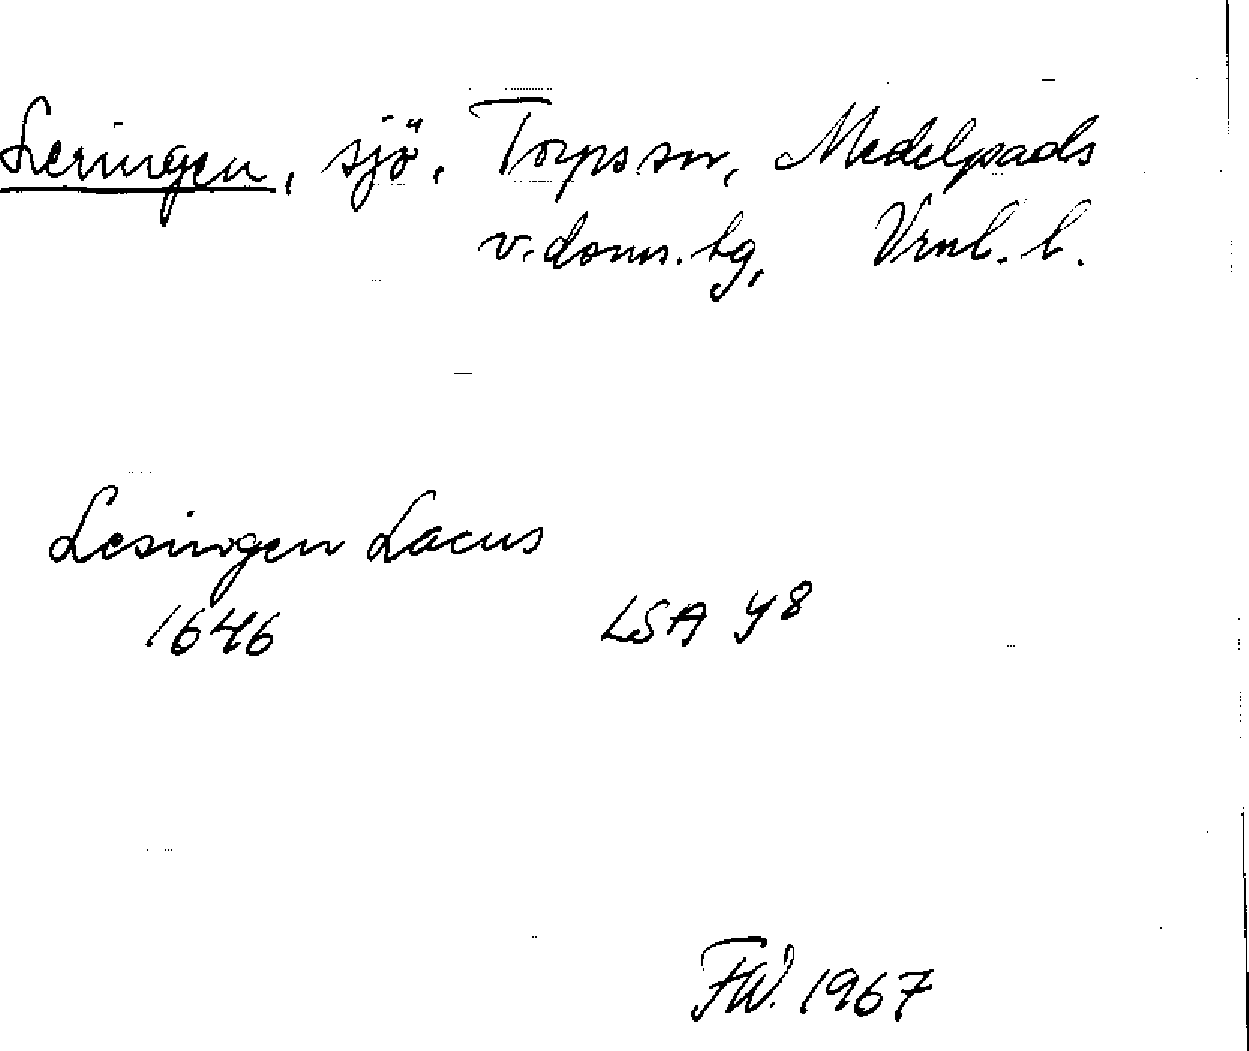 Leringen, sjö, Torps sn, Medelpads
v. doms. hg, Vrnl. l.
Lesingen Lacus
1646 LSA Y8
FW. 1967